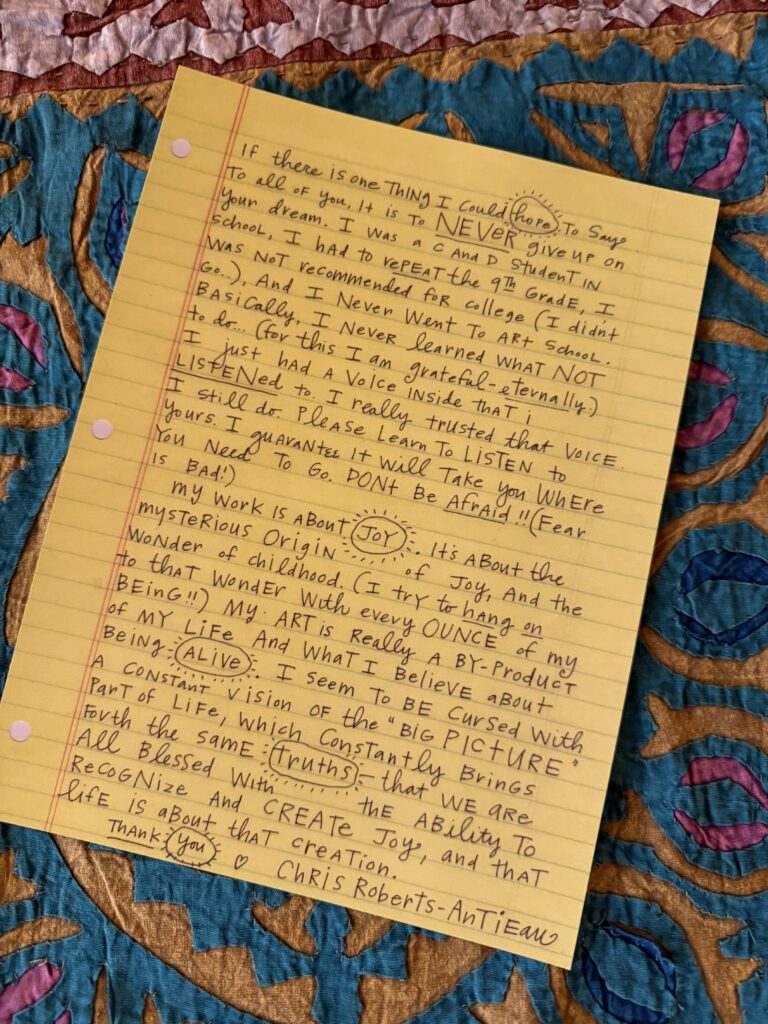 If there is one THING I Could hope To Say
To all of you, It is To NEVER give up on
Your dream. I was a C AND D StudenT IN
School, I HAD to rePEAT the 9th GradE, I
WAS NOT recommended foR college (I didnt
Go..), And I Never Went To ARt School.
BASically, I NEVER learned wHAT NOT
to do... (for this I am grateful - eternally.)
I just HAD A Voice Inside THAT i
LISTENed to. I really trusted that VOICE.
I still do. PLeASe Learn To LISTEN to
Yours. I guaranTEE IT Will TAke You WHere
You Need To Go. DONT Be AfraiD!! (Fear
IS BAD!)
My Work Is ABouT JOY. ITs ABout the
mysTeRious Origin of Joy, And the
WoNder of childhood. (I try to hang on
to thAT WonDEr With every OUNCE of my
BEinG!!) My ARTis Really A BY-PrODucT
of MY LiFe And WhaT I BeLieVE aBouT
BeinG ALIVE. I Seem To BE Cursed With
A CONSTANT Vision OF the "BIG PICTURE"
PArT of LiFe, WHich ConsTanTLy BriNgs
Forth the samE Truths - that WE are
All BLessed WiTH THE ABiLiTy To
RecoGNize And CREATe Joy, and thAT
liFE is aBouT thAT creaTion.
THANK You ♡ CHRiS RoberTs-AnTiEau